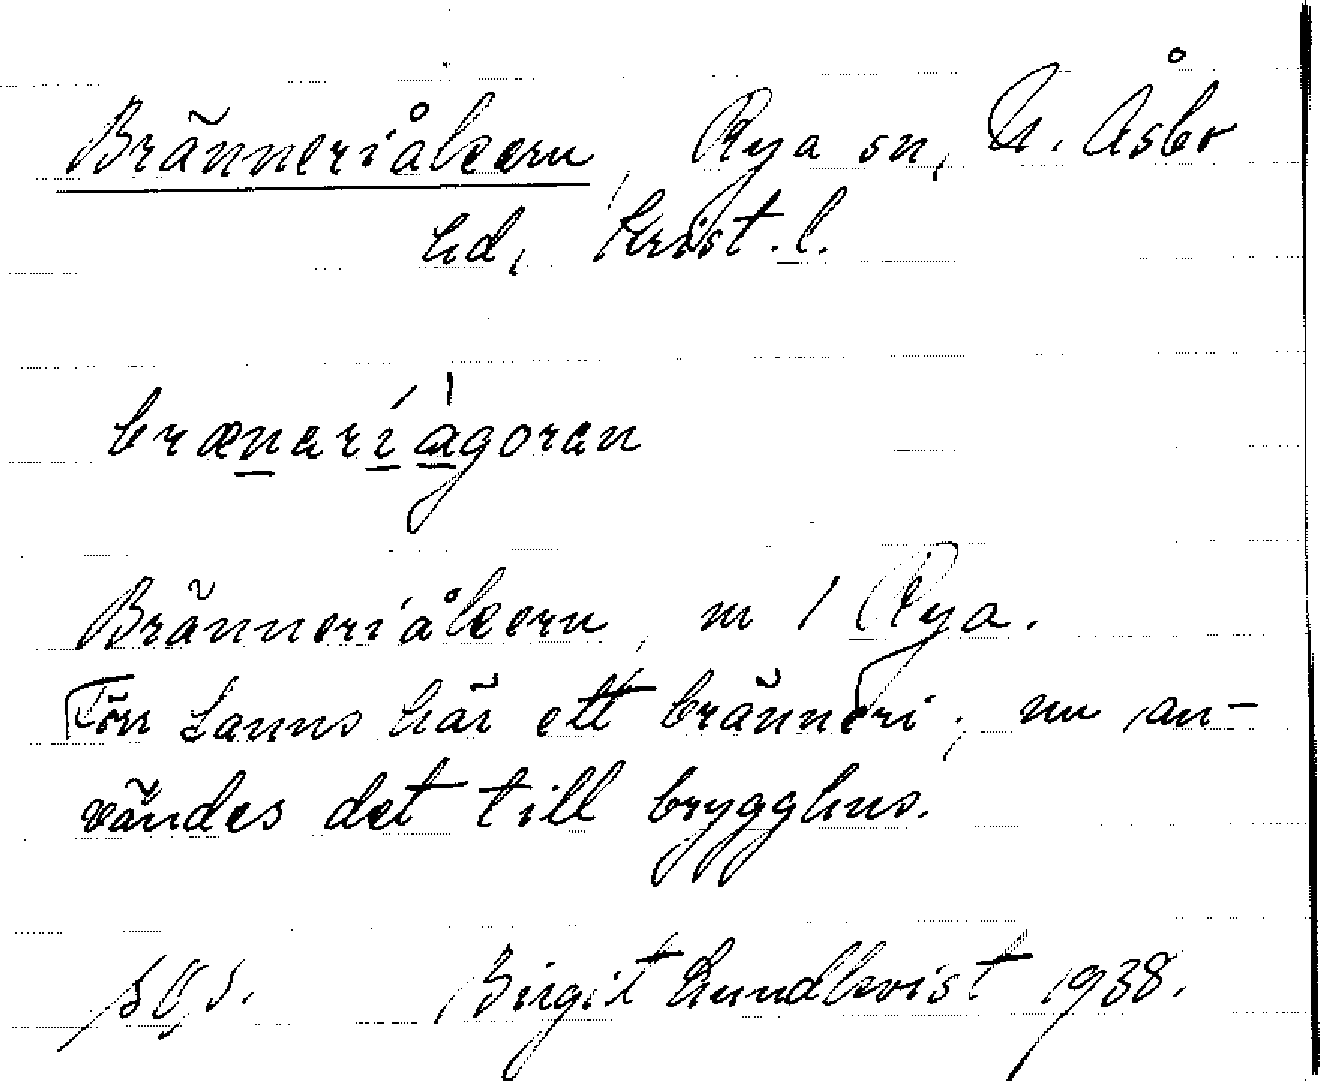 Bränneriåkern, Rya sn, N. Åsbo
hd, Krist. l.
brænaríågoran
Bränneriåkern, m 1 Rya.
Förr fanns här ett bränneri; nu an-
vändes det till brygghus.
Birgit Lundkvist 1938.